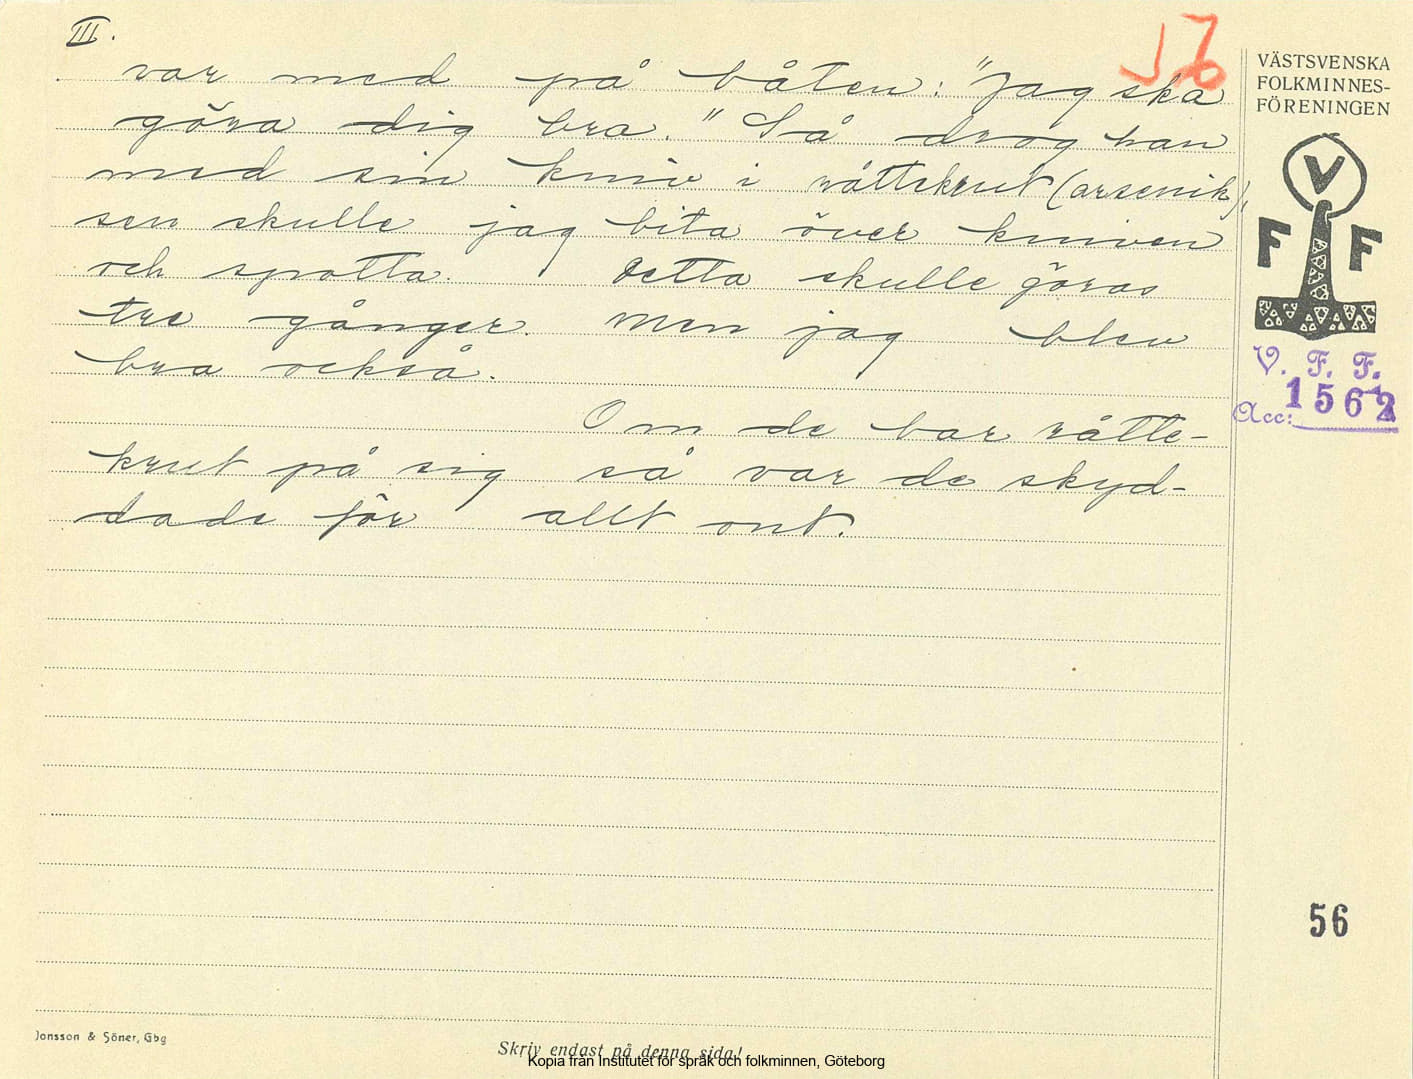 III.
56
var med på båten: "Jag ska
göra dig bra." Så drog han
med sin kniv i råttekrut (arsenik),
sen skulle jag bita över kniven
och spotta. Detta skulle göras
tre gånger. Men jag blev
bra också.
Om de bar råtte-
krut på sig så var de skyd-
dade för allt ont.
VÄSTSVENSKA
FOLKMINNES-
FÖRENINGEN
V
F F
V. F. F.
Acc: 1562
56
Jonsson & Söner, Gbg
Skriv endast på denna sida!
Kopia från Institutet för språk och folkminnen, Göteborg